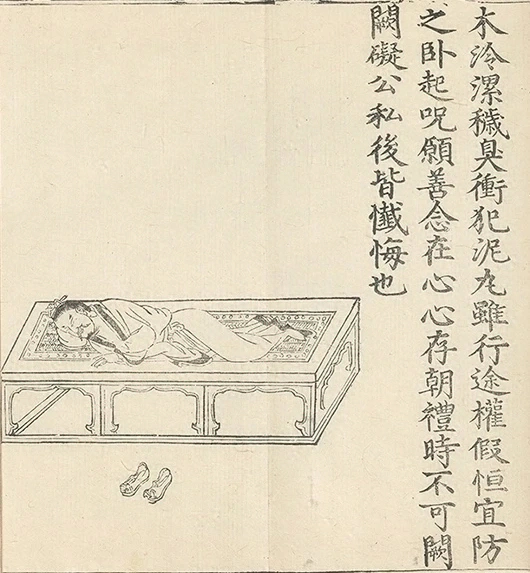 木泠漯穢臭衝犯泥丸雖行途權假恒宜防
之卧起呪願善念在心心存朝禮時不可闕
闕礙公私後皆懺悔也